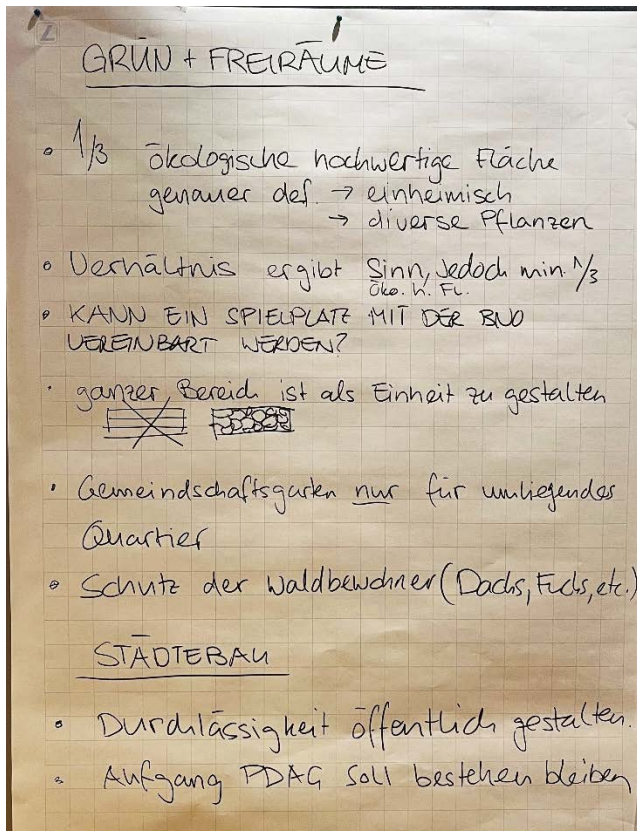 GRÜN + FREIRÄUME
• 1/3 ökologische hochwertige Fläche
genauer def. → einheimisch
→ diverse Pflanzen
• Verhältnis ergibt Sinn, Jedoch min. 1/3
Öko. h. Fl.
• KANN EIN SPIELPLATZ MIT DER BNO
VEREINBART WERDEN?
• ganzer Bereich ist als Einheit zu gestalten
• Gemeindschaftsgarten nur für umliegendes
Quartier
• Schutz der Waldbewohner (Dachs, Fuchs, etc.)
STÄDTEBAU
• Durchlässigkeit öffentlich gestalten.
• Aufgang PDAG soll bestehen bleiben